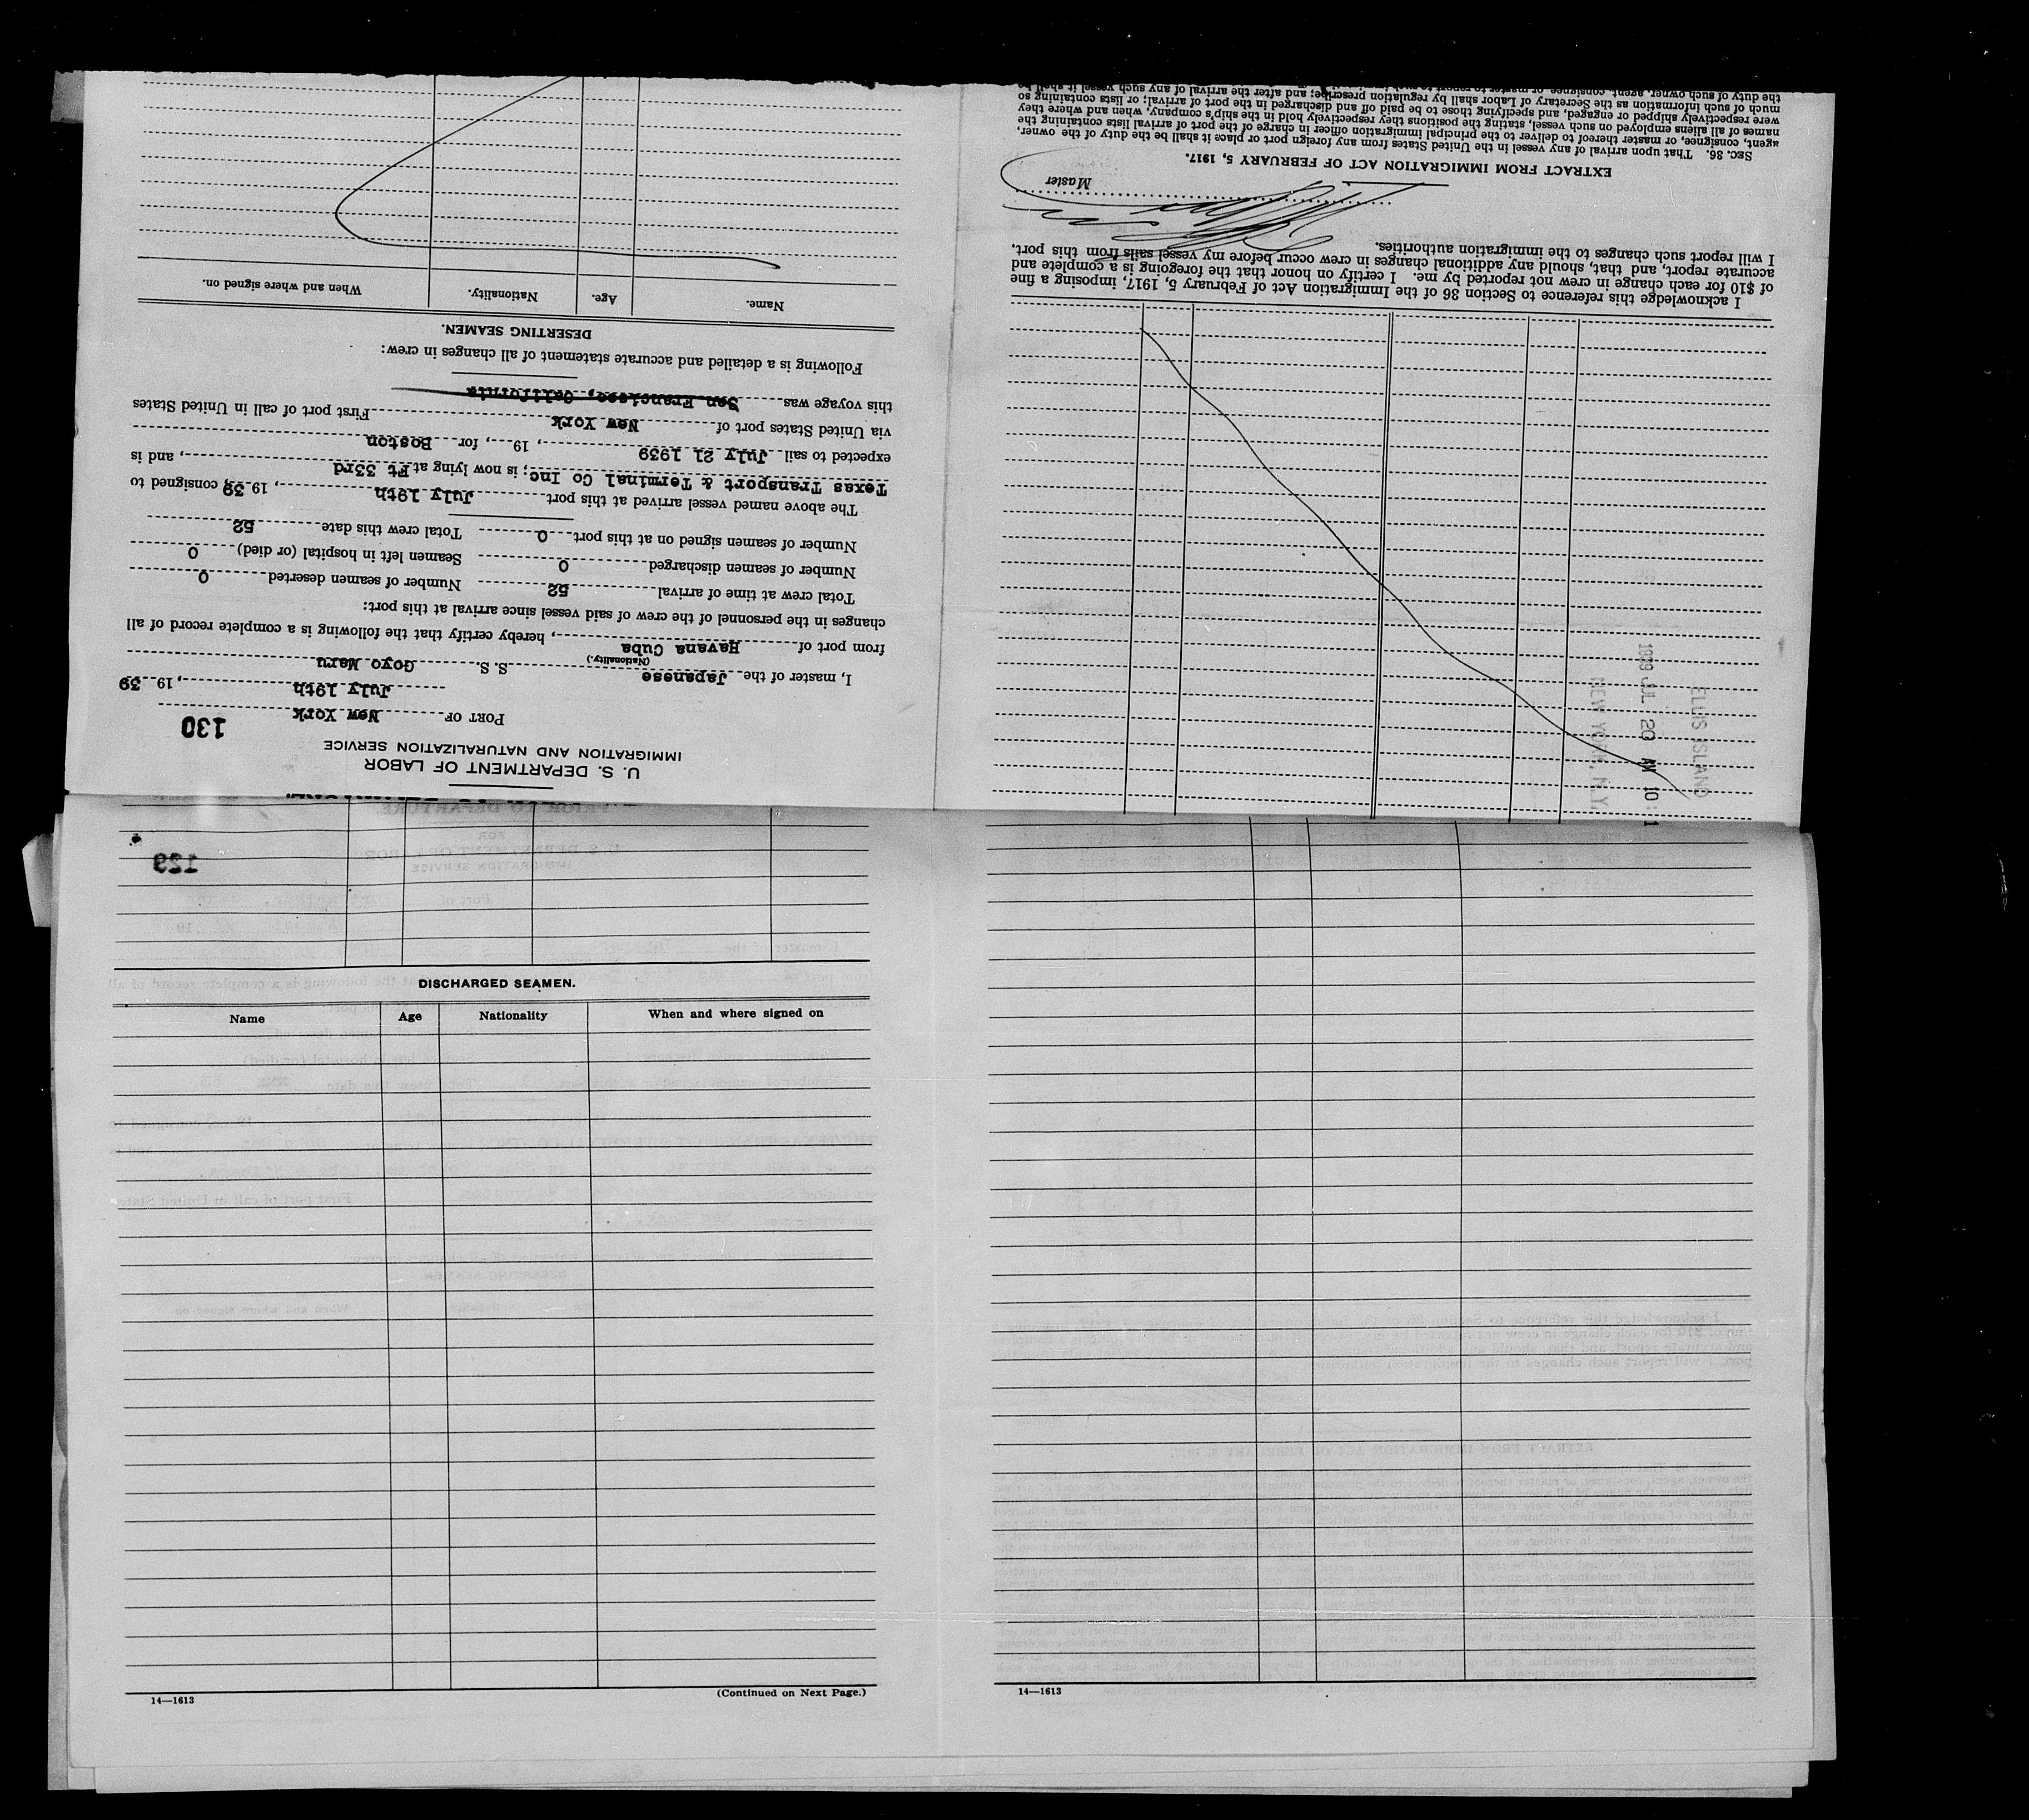 U. S. DEPARTMENT OF LABOR
IMMIGRATION AND NATURALIZATION SERVICE
130
PORT OF New York
July 19th, 19 39
I, master of the Japanese S. S. Goyo Maru
(Nationality.)
from port of Havana Cuba, hereby certify that the following is a complete record of all
changes in the personnel of the crew of said vessel since arrival at this port:
Total crew at time of arrival 52 Number of seamen deserted 0
Number of seamen discharged 0 Seamen left in hospital (or died) 0
Number of seamen signed on at this port 0 Total crew this date 52
The above named vessel arrived at this port July 19th, 19 39, consigned to
Texas Transport & Terminal Co Inc; is now lying at Ft 33rd, and is
expected to sail July 21 1939, 19, for Boston
via United States port of New York First port of call in United States
this voyage was San Francisco, California
Following is a detailed and accurate statement of all changes in crew:
DESERTING SEAMEN.
Name. Age. Nationality. When and where signed on.
ELLIS ISLAND
1939 JUL 20 AM 10
NEW YORK, N.Y.
I acknowledge this reference to Section 36 of the Immigration Act of February 5, 1917, imposing a fine
of $10 for each change in crew not reported by me. I certify on honor that the foregoing is a complete and
accurate report, and that, should any additional changes in crew occur before my vessel sails from this port,
I will report such changes to the immigration authorities.
Master
EXTRACT FROM IMMIGRATION ACT OF FEBRUARY 5, 1917.
SEC. 36. That upon arrival of any vessel in the United States from any foreign port or place it shall be the duty of the owner,
agent, consignee, or master thereof to deliver to the principal immigration officer in charge of the port of arrival lists containing the
names of all aliens employed on such vessel, stating the positions they respectively hold in the ship's company, when and where they
were respectively shipped or engaged, and specifying those to be paid off and discharged in the port of arrival; or lists containing so
much of such information as the Secretary of Labor shall by regulation prescribe; and after the arrival of any such vessel it shall be
the duty of such owner, agent, consignee, or master to report to such immigration
129
DISCHARGED SEAMEN.
Name Age Nationality When and where signed on
14—1613 (Continued on Next Page.)
14—1613